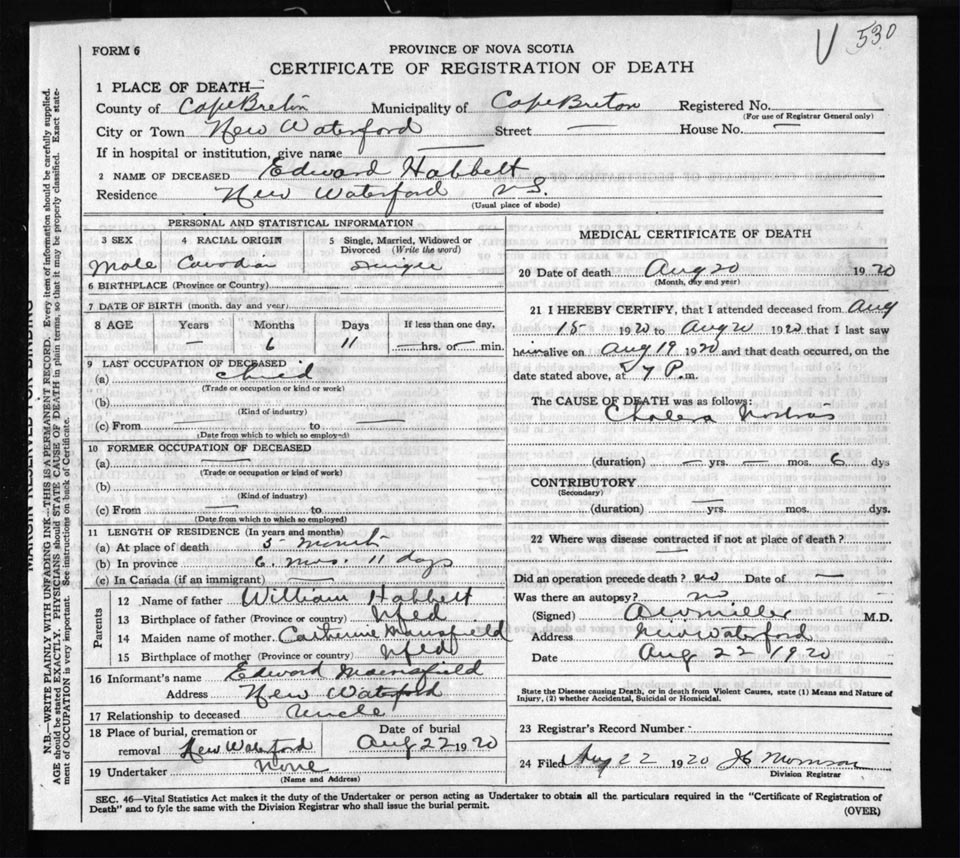 530
FORM 6
PROVINCE OF NOVA SCOTIA
CERTIFICATE OF REGISTRATION OF DEATH
1 PLACE OF DEATH—
County of Cape Breton Municipality of Cape Breton Registered No.
(For use of Registrar General only)
City or Town New Waterford Street — House No. —
If in hospital or institution, give name —
2 NAME OF DECEASED Edward Habbelt
Residence New Waterford N.S.
(Usual place of abode)
PERSONAL AND STATISTICAL INFORMATION
3 SEX 4 RACIAL ORIGIN 5 Single, Married, Widowed or Divorced (Write the word)
Male Canadian Single
6 BIRTHPLACE (Province or Country)
7 DATE OF BIRTH (month, day and year)
8 AGE Years Months Days If less than one day,
— 6 11 — hrs. or — min.
9 LAST OCCUPATION OF DECEASED
(a) Child
(Trade or occupation or kind or work)
(b)
(Kind of industry)
(c) From — to —
(Date from which to which so employed)
10 FORMER OCCUPATION OF DECEASED
(a) —
(Trade or occupation or kind of work)
(b)
(Kind of industry)
(c) From — to
(Date from which to which so employed)
11 LENGTH OF RESIDENCE (In years and months)
(a) At place of death 5 months
(b) In province 6. mos. 11 days
(c) In Canada (if an immigrant) —
Parents
12 Name of father William Habbelt
13 Birthplace of father (Province or country) Nfld
14 Maiden name of mother Catherine Mansfield
15 Birthplace of mother (Province or country) Nfld
16 Informant's name Edward Mansfield
Address New Waterford
17 Relationship to deceased Uncle
18 Place of burial, cremation or removal New Waterford Date of burial Aug 22 1920
19 Undertaker None
(Name and Address)
MEDICAL CERTIFICATE OF DEATH
20 Date of death Aug 20 1920
(Month, day and year)
21 I HEREBY CERTIFY, that I attended deceased from Aug
15 1920 to Aug 20 1920 that I last saw
him alive on Aug 19 1920 and that death occurred, on the
date stated above, at 7 P.m.
The CAUSE OF DEATH was as follows:
Cholera Nostras
(duration) — yrs. — mos. 6 dys
CONTRIBUTORY —
(Secondary)
(duration) — yrs. mos. dys.
22 Where was disease contracted if not at place of death?
—
Did an operation precede death? no Date of —
Was there an autopsy? no
(Signed) Miller M.D.
Address New Waterford
Date Aug 22 1920
State the Disease causing Death, or in death from Violent Causes, state (1) Means and Nature of
Injury, (2) whether Accidental, Suicidal or Homicidal.
23 Registrar's Record Number
24 Filed Aug 22 1920 Morrison
Division Registrar
SEC. 46—Vital Statistics Act makes it the duty of the Undertaker or person acting as Undertaker to obtain all the particulars required in the "Certificate of Registration of
Death" and to fyle the same with the Division Registrar who shall issue the burial permit.
(OVER)
MARGIN RESERVED FOR BINDING
N.B.—WRITE PLAINLY WITH UNFADING INK—THIS IS A PERMANENT RECORD. Every item of information should be carefully supplied.
AGE should be stated EXACTLY. PHYSICIANS should STATE CAUSE OF DEATH in plain terms, so that it may be properly classified. Exact state-
ment of OCCUPATION is very important. See instructions on back of Certificate.